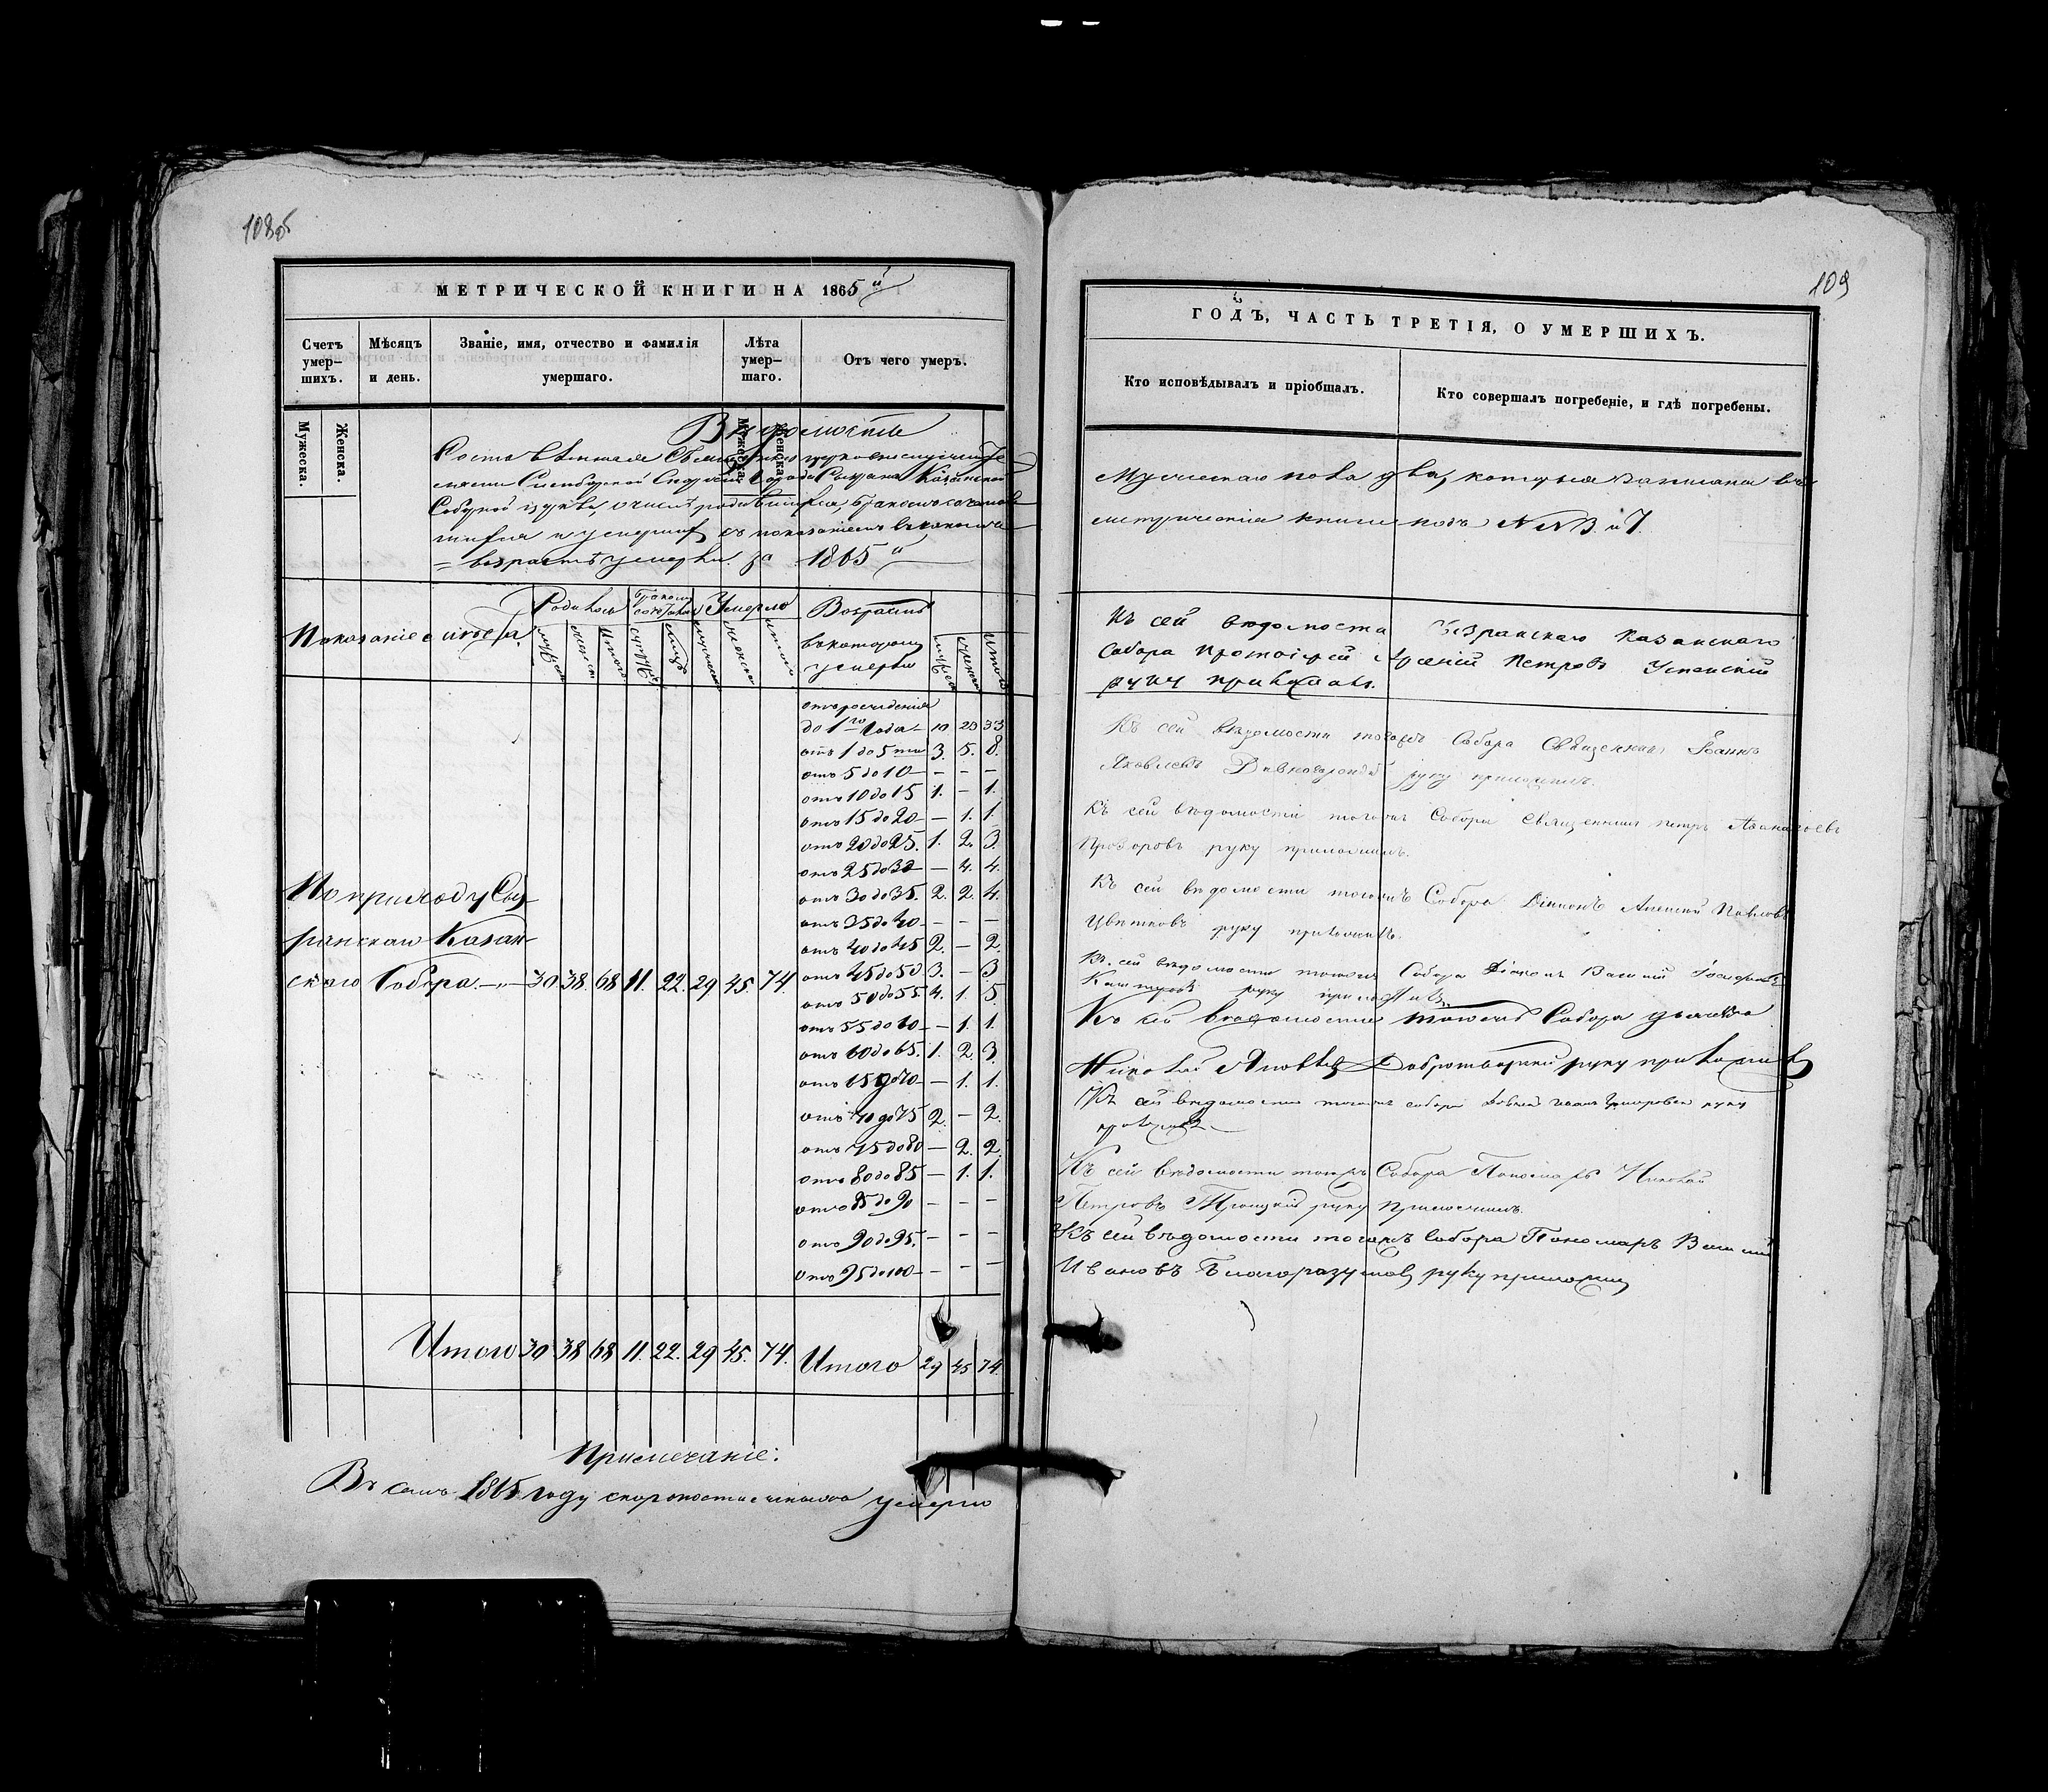 108об
МЕТРИЧЕСКОЙ КНИГИ НА 1865й
Счетъ умер-шихъ.
Мѣсяцъ и день.
Званіе, имя, отчество и фамилія умершаго.
Лѣта умер-шаго.
Отъ чего умеръ.
Мужеска. Женска.
Мужеска. Женска.
Вѣдомость
Симбирской Епархіи города Сызрана Казанской
Соборной церкви, о числѣ родившихся, бракомъ сочетав
шихся и умершихъ съ показаніемъ въ какомъ
= возрастѣ умерли за 1865й
Показаніе
Родилось
Бракомъ
Умерло
Возрастъ
въ которомъ
умерли
мужеск
женск
Итого
мужеск
женск
итого
мужеск
женск
Итого
отъ рожденія
до 1го года 10 23 33
отъ 1 до 5ти 3. 5. 8.
отъ 5 до 10 — — —
отъ 10 до 15 1. — 1.
отъ 15 до 20 — 1. 1.
отъ 20 до 25. 1. 2. 3.
отъ 25 до 30 — 4. 4.
отъ 30 до 35. 2. 2. 4.
отъ 35 до 40 — — —
отъ 40 до 45 2. — 2.
отъ 45 до 50 3. — 3
отъ 50 до 55. 4. 1. 5.
отъ 55 до 60 — 1. 1.
отъ 60 до 65. 1. 2. 3.
отъ 65 до 70 — 1. 1.
отъ 70 до 75 2. — 2.
отъ 75 до 80 — 2. 2.
отъ 80 до 85 — 1. 1.
отъ 85 до 90 — — —
отъ 90 до 95. — — —
отъ 95 до 100 — — —
По приходу Сыз-
ранскаго Казан-
скаго Собора — 30 38. 68 11. 22. 29 45. 74.
Итого 30 38 68 11. 22. 29 45. 74. Итого 29 45 74.
Примечаніе:
Въ семъ 1865 году скоропостижно умерло
109
ГОДЪ, ЧАСТЬ ТРЕТІЯ, О УМЕРШИХЪ.
Кто исповѣдывалъ и пріобщалъ.
Кто совершалъ погребеніе, и гдѣ погребены.
Мужескаго пола два, которые записаны в ме
трическія книги подъ № № 3. и 7.
Къ сей ведомости Сызранскаго Казанскаго
Собора Протоіерей Арсеній Петровъ Успенскій
руку приложилъ.
Къ сей вѣдомости тогожъ Собора Священникъ Іоаннъ
Яковлевъ руку приложилъ.
Къ сей вѣдомости тогожъ Собора Священникъ Петръ Аѳанасьевъ
руку приложилъ.
Къ сей вѣдомости тогожъ Собора Діаконъ Алексей Павловъ
Цвѣтковъ руку приложилъ.
Къ сей вѣдомости тогожъ Собора Діаконъ Василій
руку приложилъ
Къ сей вѣдомости тогожъ Собора
Николай Яковлевъ Добротворскій руку приложилъ
Къ сей вѣдомости тогожъ собора Иванъ Григорьевъ руку
приложилъ
Къ сей вѣдомости тогожъ Собора Пономарь Николай
Петровъ Троицкій руку приложилъ.
Къ сей вѣдомости тогожъ Собора Пономарь Василій
Ивановъ Благоразумовъ руку приложилъ